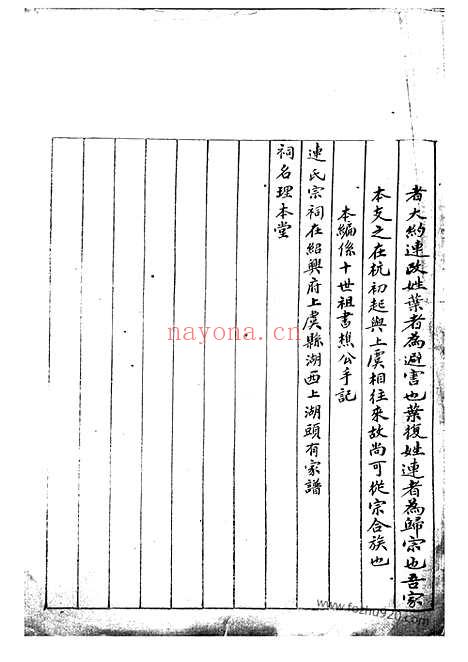 者大約連改姓葉者為避害也葉復姓連者為歸宗也吾家
本支之在杭初起與上虞相往來故尚可從宗合族也
本編係十世祖書樵公手記
連氏宗祠在紹興府上虞縣湖西上湖頭有家譜
祠名理本堂
nayona.cn
www.fozhu920.com